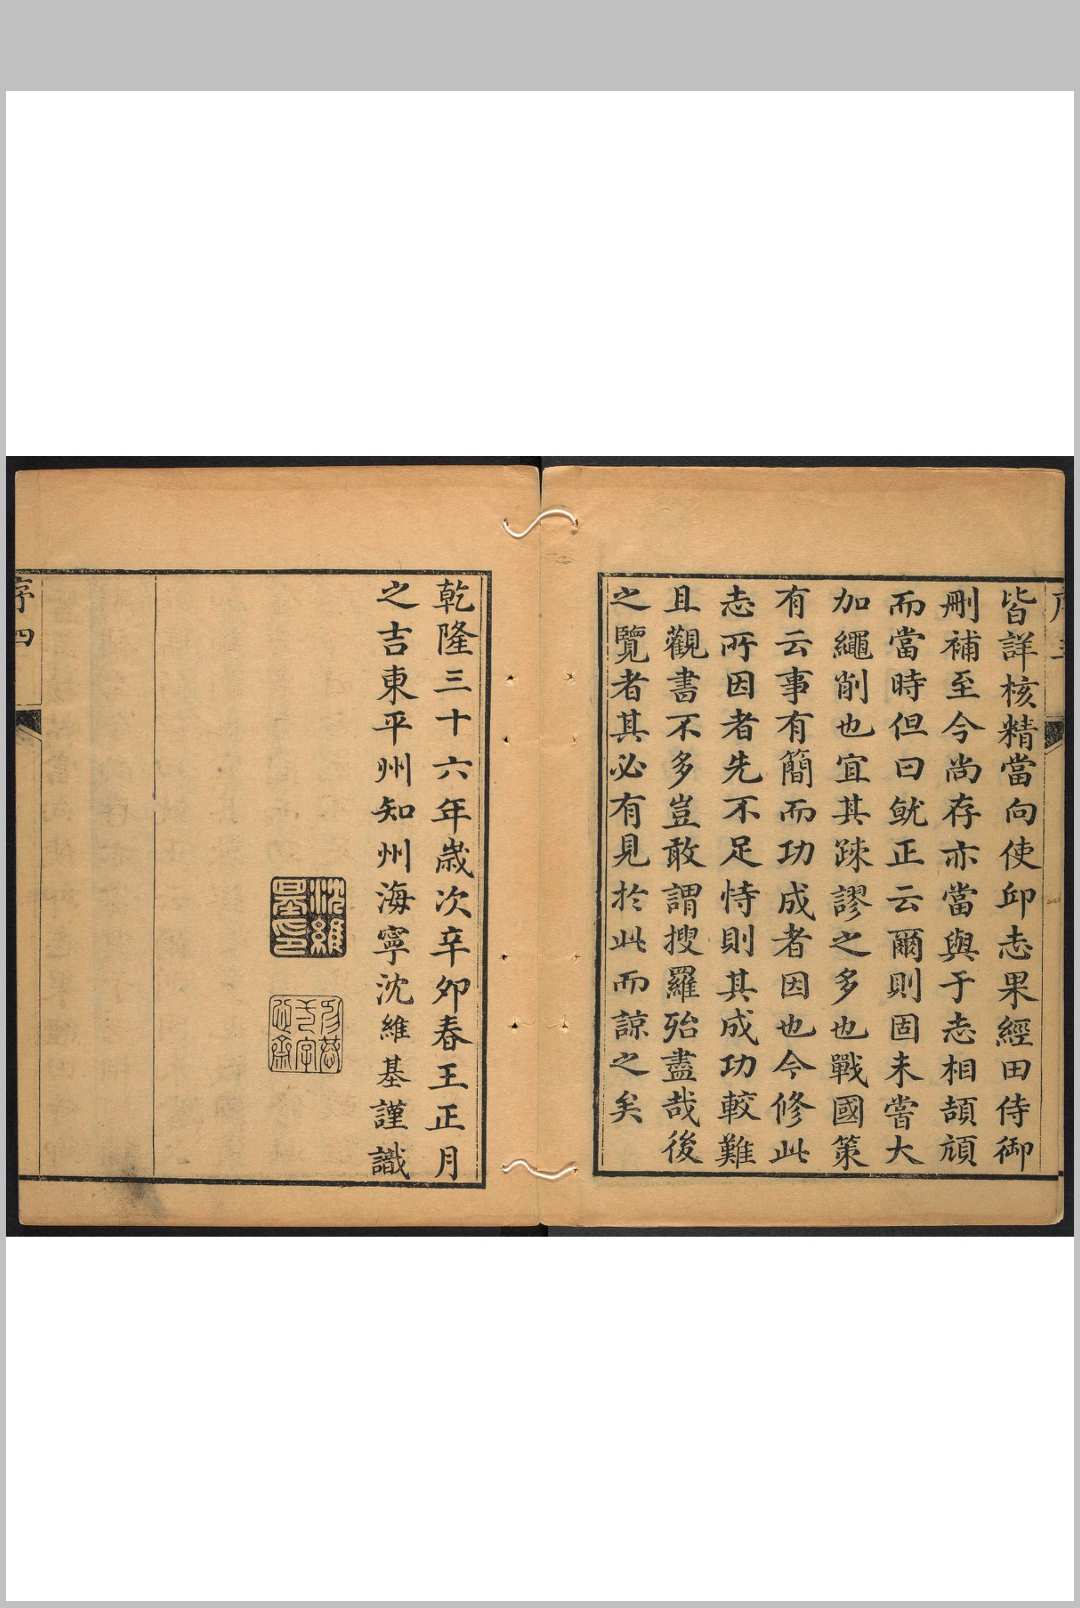 皆詳核精當向使邱志果經田侍御
刪補至今尚存亦當與于志相頡頏
而當時但曰魷正云爾則固未嘗大
加繩削也宜其踈謬之多也戰國策
有云事有簡而功成者因也今修此
志所因者先不足恃則其成功較難
且觀書不多豈敢謂搜羅殆盡哉後
之覽者其必有見於此而諒之矣
乾隆三十六年歲次辛卯春王正月
之吉東平州知州海寧沈維基謹識
沈維
基印
序四